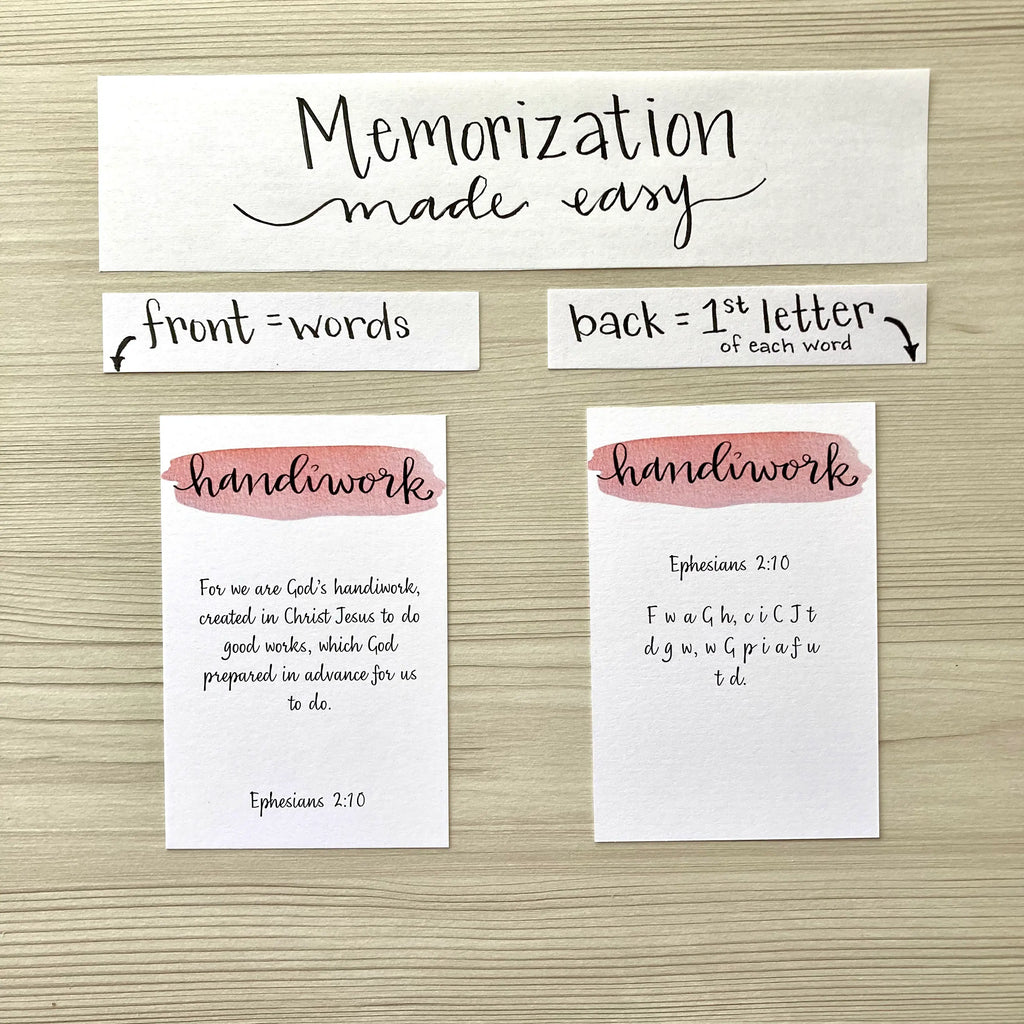 Memorization
made easy
front = words
back = 1st letter
of each word
handiwork
For we are God's handiwork,
created in Christ Jesus to do
good works, which God
prepared in advance for us
to do.
Ephesians 2:10
handiwork
Ephesians 2:10
F w a G h, c i C J t
d g w, w G p i a f u
t d.